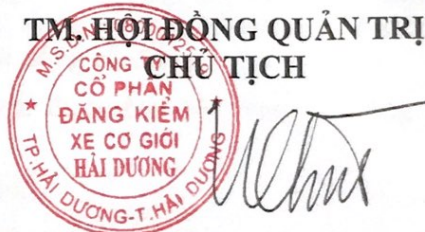 TM. HỘI ĐỒNG QUẢN TRỊ
CHỦ TỊCH
CÔNG TY
CỔ PHẦN
ĐĂNG KIỂM
XE CƠ GIỚI
HẢI DƯƠNG
TP.HẢI DƯƠNG-T.HẢI DƯƠNG